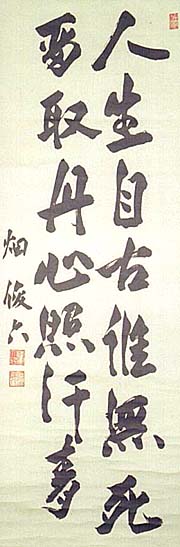 人生自古誰無死
留取丹心照汗青
畑俊六